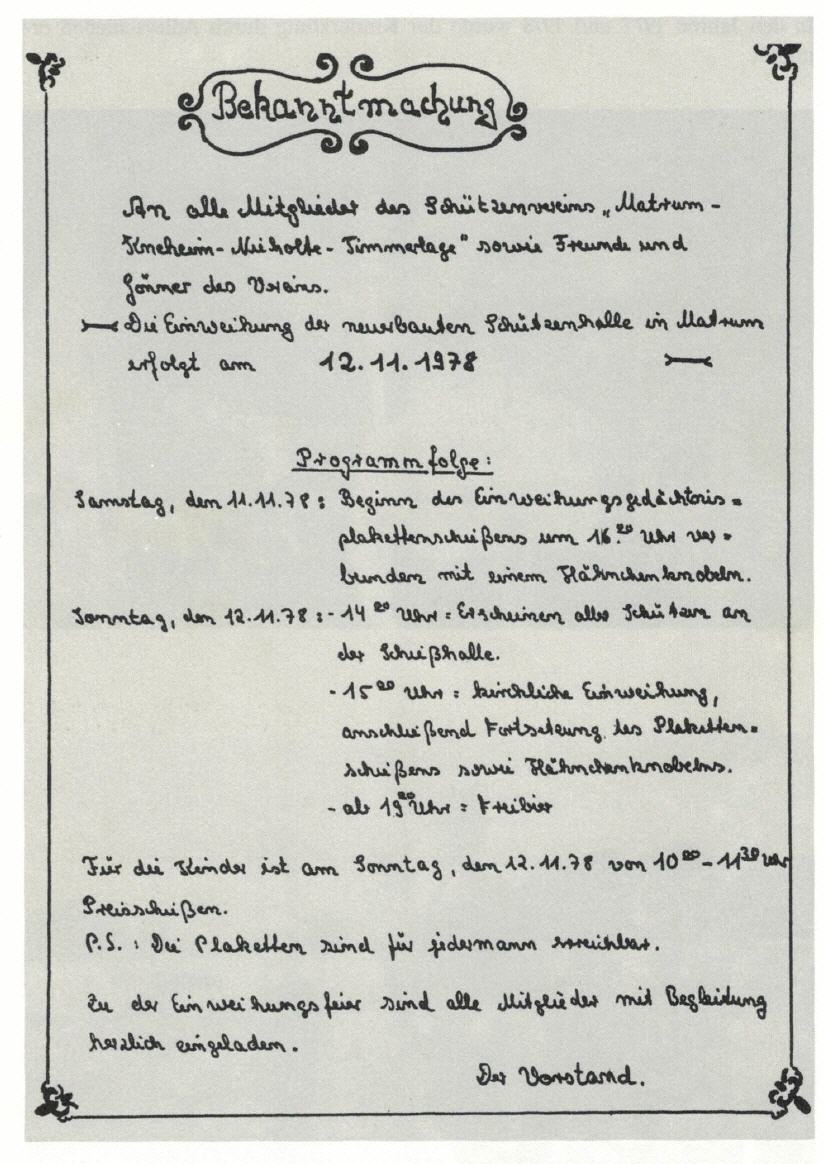 Bekanntmachung
An alle Mitglieder des Schützenvereins „Matrum-
Kneheim-Nieholte-Timmerlage" sowie Freunde und
Gönner des Vereins.
Die Einweihung der neuerbauten Schützenhalle in Matrum
erfolgt am 12.11.1978
Programmfolge:
Samstag, den 11.11.78: Beginn des Einweihungsgedächtnis=
plakettenschießens um 16.00 Uhr ver=
bunden mit einem Hähnchenknobeln.
Sonntag, den 12.11.78:- 14 00 Uhr = Erscheinen aller Schützen an
der Schießhalle.
- 15 00 Uhr = kirchliche Einweihung,
anschließend Fortsetzung des Plaketten=
schießens sowie Hähnchenknobelns.
- ab 19 00 Uhr = Freibier
Für die Kinder ist am Sonntag, den 12.11.78 von 10 00 - 11 30 Uhr
Preisschießen.
P.S.: Die Plaketten sind für jedermann erreichbar.
Zu der Einweihungsfeier sind alle Mitglieder mit Begleitung
herzlich eingeladen.
Der Vorstand.